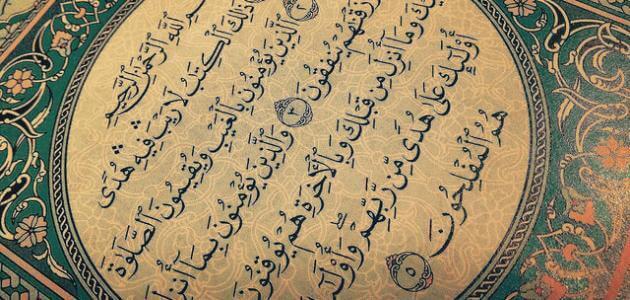 ٱللَّهِ ٱلرَّحْمَٰنِ ٱلرَّحِيمِ
ذَٰلِكَ ٱلْكِتَٰبُ لَا رَيْبَ فِيهِ هُدًى
٢ ٱلَّذِينَ يُؤْمِنُونَ بِٱلْغَيْبِ وَيُقِيمُونَ ٱلصَّلَوٰةَ
رَزَقْنَٰهُمْ يُنفِقُونَ ٣ وَٱلَّذِينَ يُؤْمِنُونَ بِمَآ أُنزِلَ
وَمَآ أُنزِلَ مِن قَبْلِكَ وَبِٱلْءَاخِرَةِ هُمْ يُوقِنُونَ
أُو۟لَٰٓئِكَ عَلَىٰ هُدًى مِّن رَّبِّهِمْ وَأُو۟لَٰٓئِكَ
هُمُ ٱلْمُفْلِحُونَ ٥